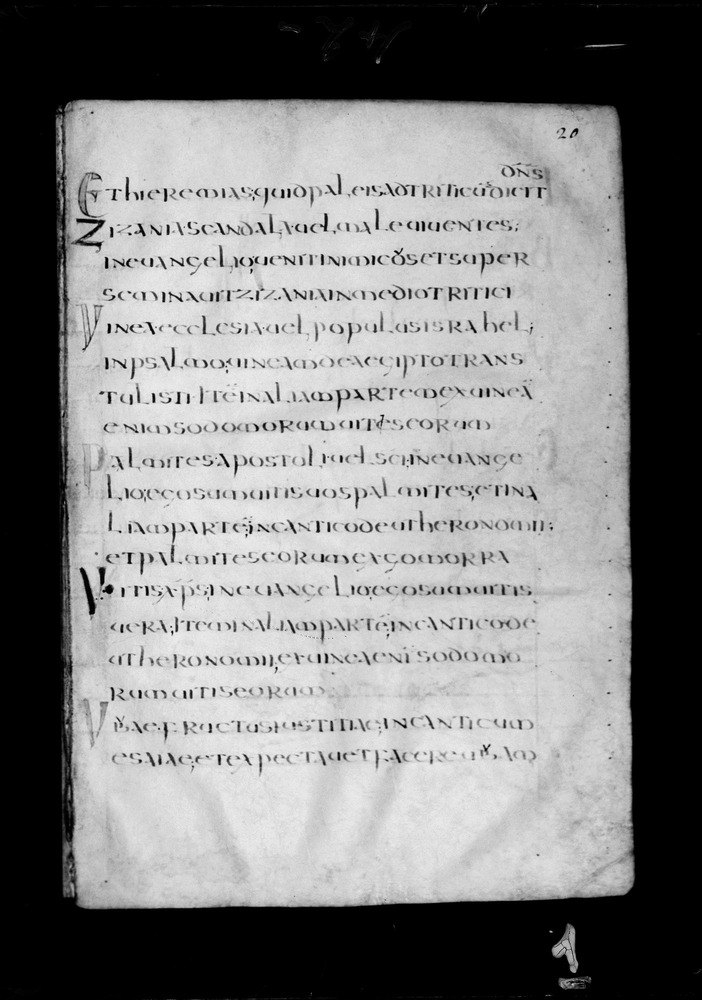 20
Et hieremias; quid paleis ad triticu dicit dns
Zizania scandala, vel male viventes;
in evangelio; venit inimicus et super
seminavit zizania in medio tritici
Vinea ecclesia, vel populus israhel;
in psalmo; vineam de aegipto trans
tulisti; Ite in aliam partem ex vinea
enim sodomorum vites eorum
Palmites apostoli, vel sci; in evange
lio; ego sum vitis vos palmites; et in a
liam parte; in cantico deutheronomii;
et palmites eorum ex gomorra
Vitis xps; in evangelio; ego sum vitis
vera; Item in aliam parte; in cantico de
utheronomii; et vinea eni sodomo
rum vitis eorum
Uvae fructus iustitiae; in canticum
esaiae; et expectavet facere uvam
1